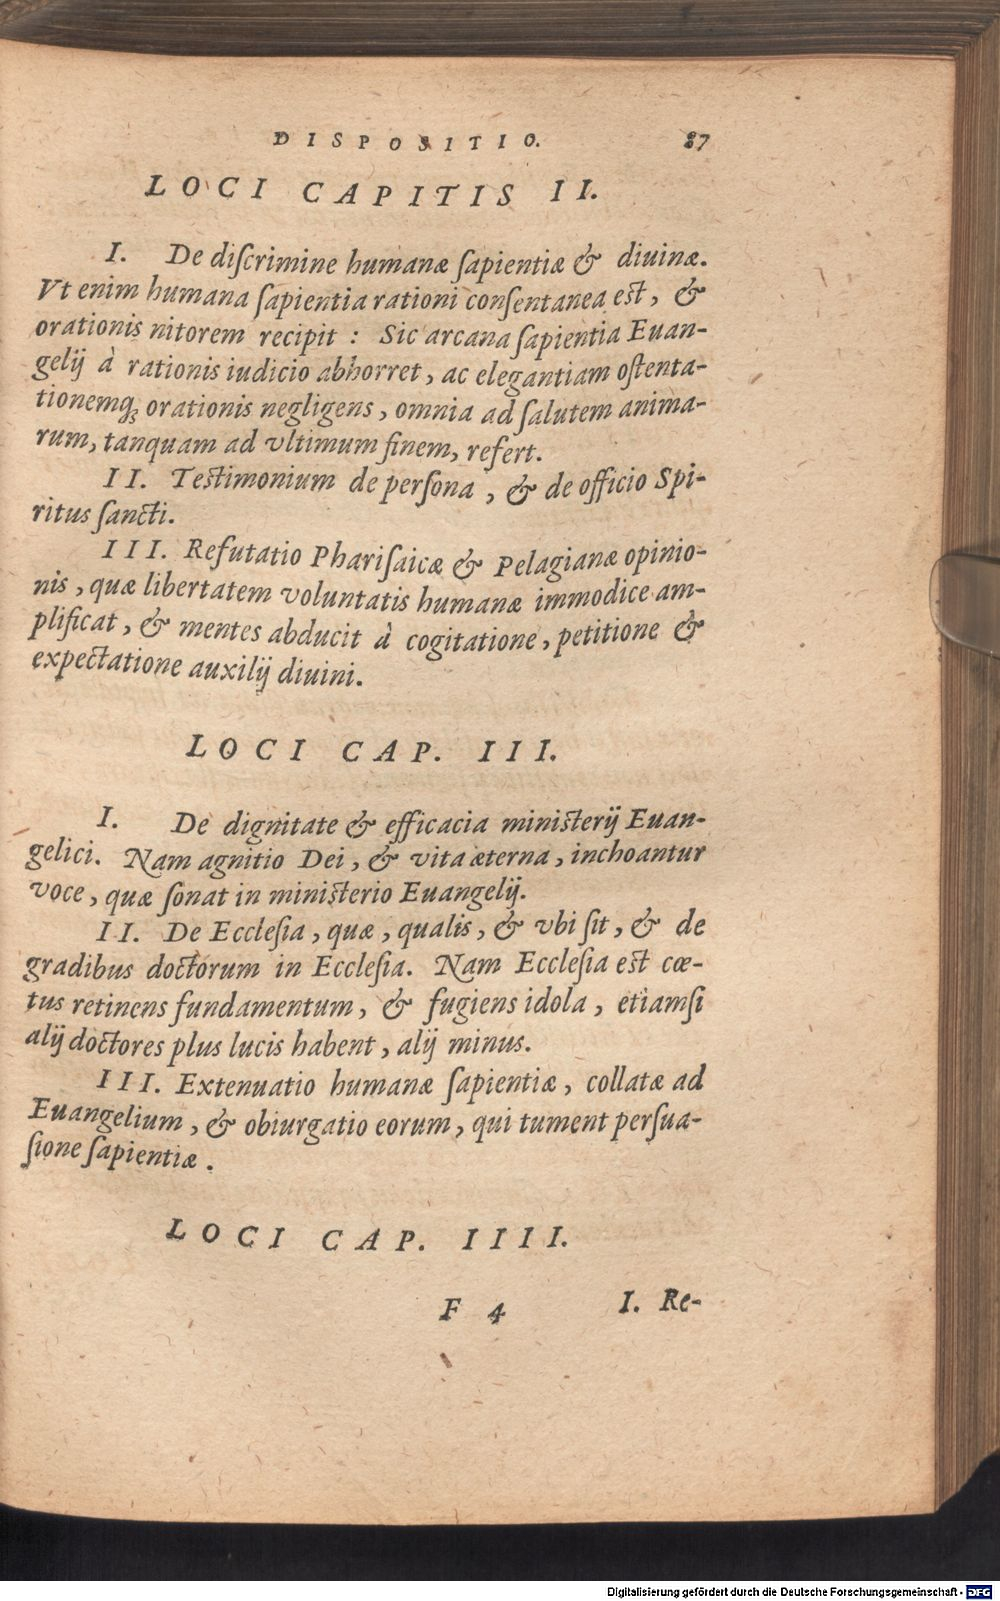 DISPOSITIO. 87
LOCI CAPITIS II.
I. De diſcrimine humanæ ſapientiæ & diuinæ.
Vt enim humana ſapientia rationi conſentanea est, &
orationis nitorem recipit : Sic arcana ſapientia Euan-
gelij à rationis iudicio abhorret, ac elegantiam oſtenta-
tionemq́; orationis negligens, omnia ad ſalutem anima-
rum, tanquam ad vltimum finem, refert.
II. Testimonium de perſona, & de officio Spi-
ritus ſancti.
III. Refutatio Phariſaicæ & Pelagianæ opinio-
nis, quæ libertatem voluntatis humanæ immodice am-
plificat, & mentes abducit à cogitatione, petitione &
expectatione auxilij diuini.
LOCI CAP. III.
I. De dignitate & efficacia ministerij Euan-
gelici. Nam agnitio Dei, & vita æterna, inchoantur
voce, quæ ſonat in ministerio Euangelij.
II. De Eccleſia, quæ, qualis, & vbi ſit, & de
gradibus doctorum in Eccleſia. Nam Eccleſia est cœ-
tus retinens fundamentum, & fugiens idola, etiamſi
alij doctores plus lucis habent, alij minus.
III. Extenuatio humanæ ſapientiæ, collatæ ad
Euangelium, & obiurgatio eorum, qui tument perſua-
ſione ſapientiæ.
LOCI CAP. IIII.
F 4 I. Re-
Digitalisierung gefördert durch die Deutsche Forschungsgemeinschaft - DFG